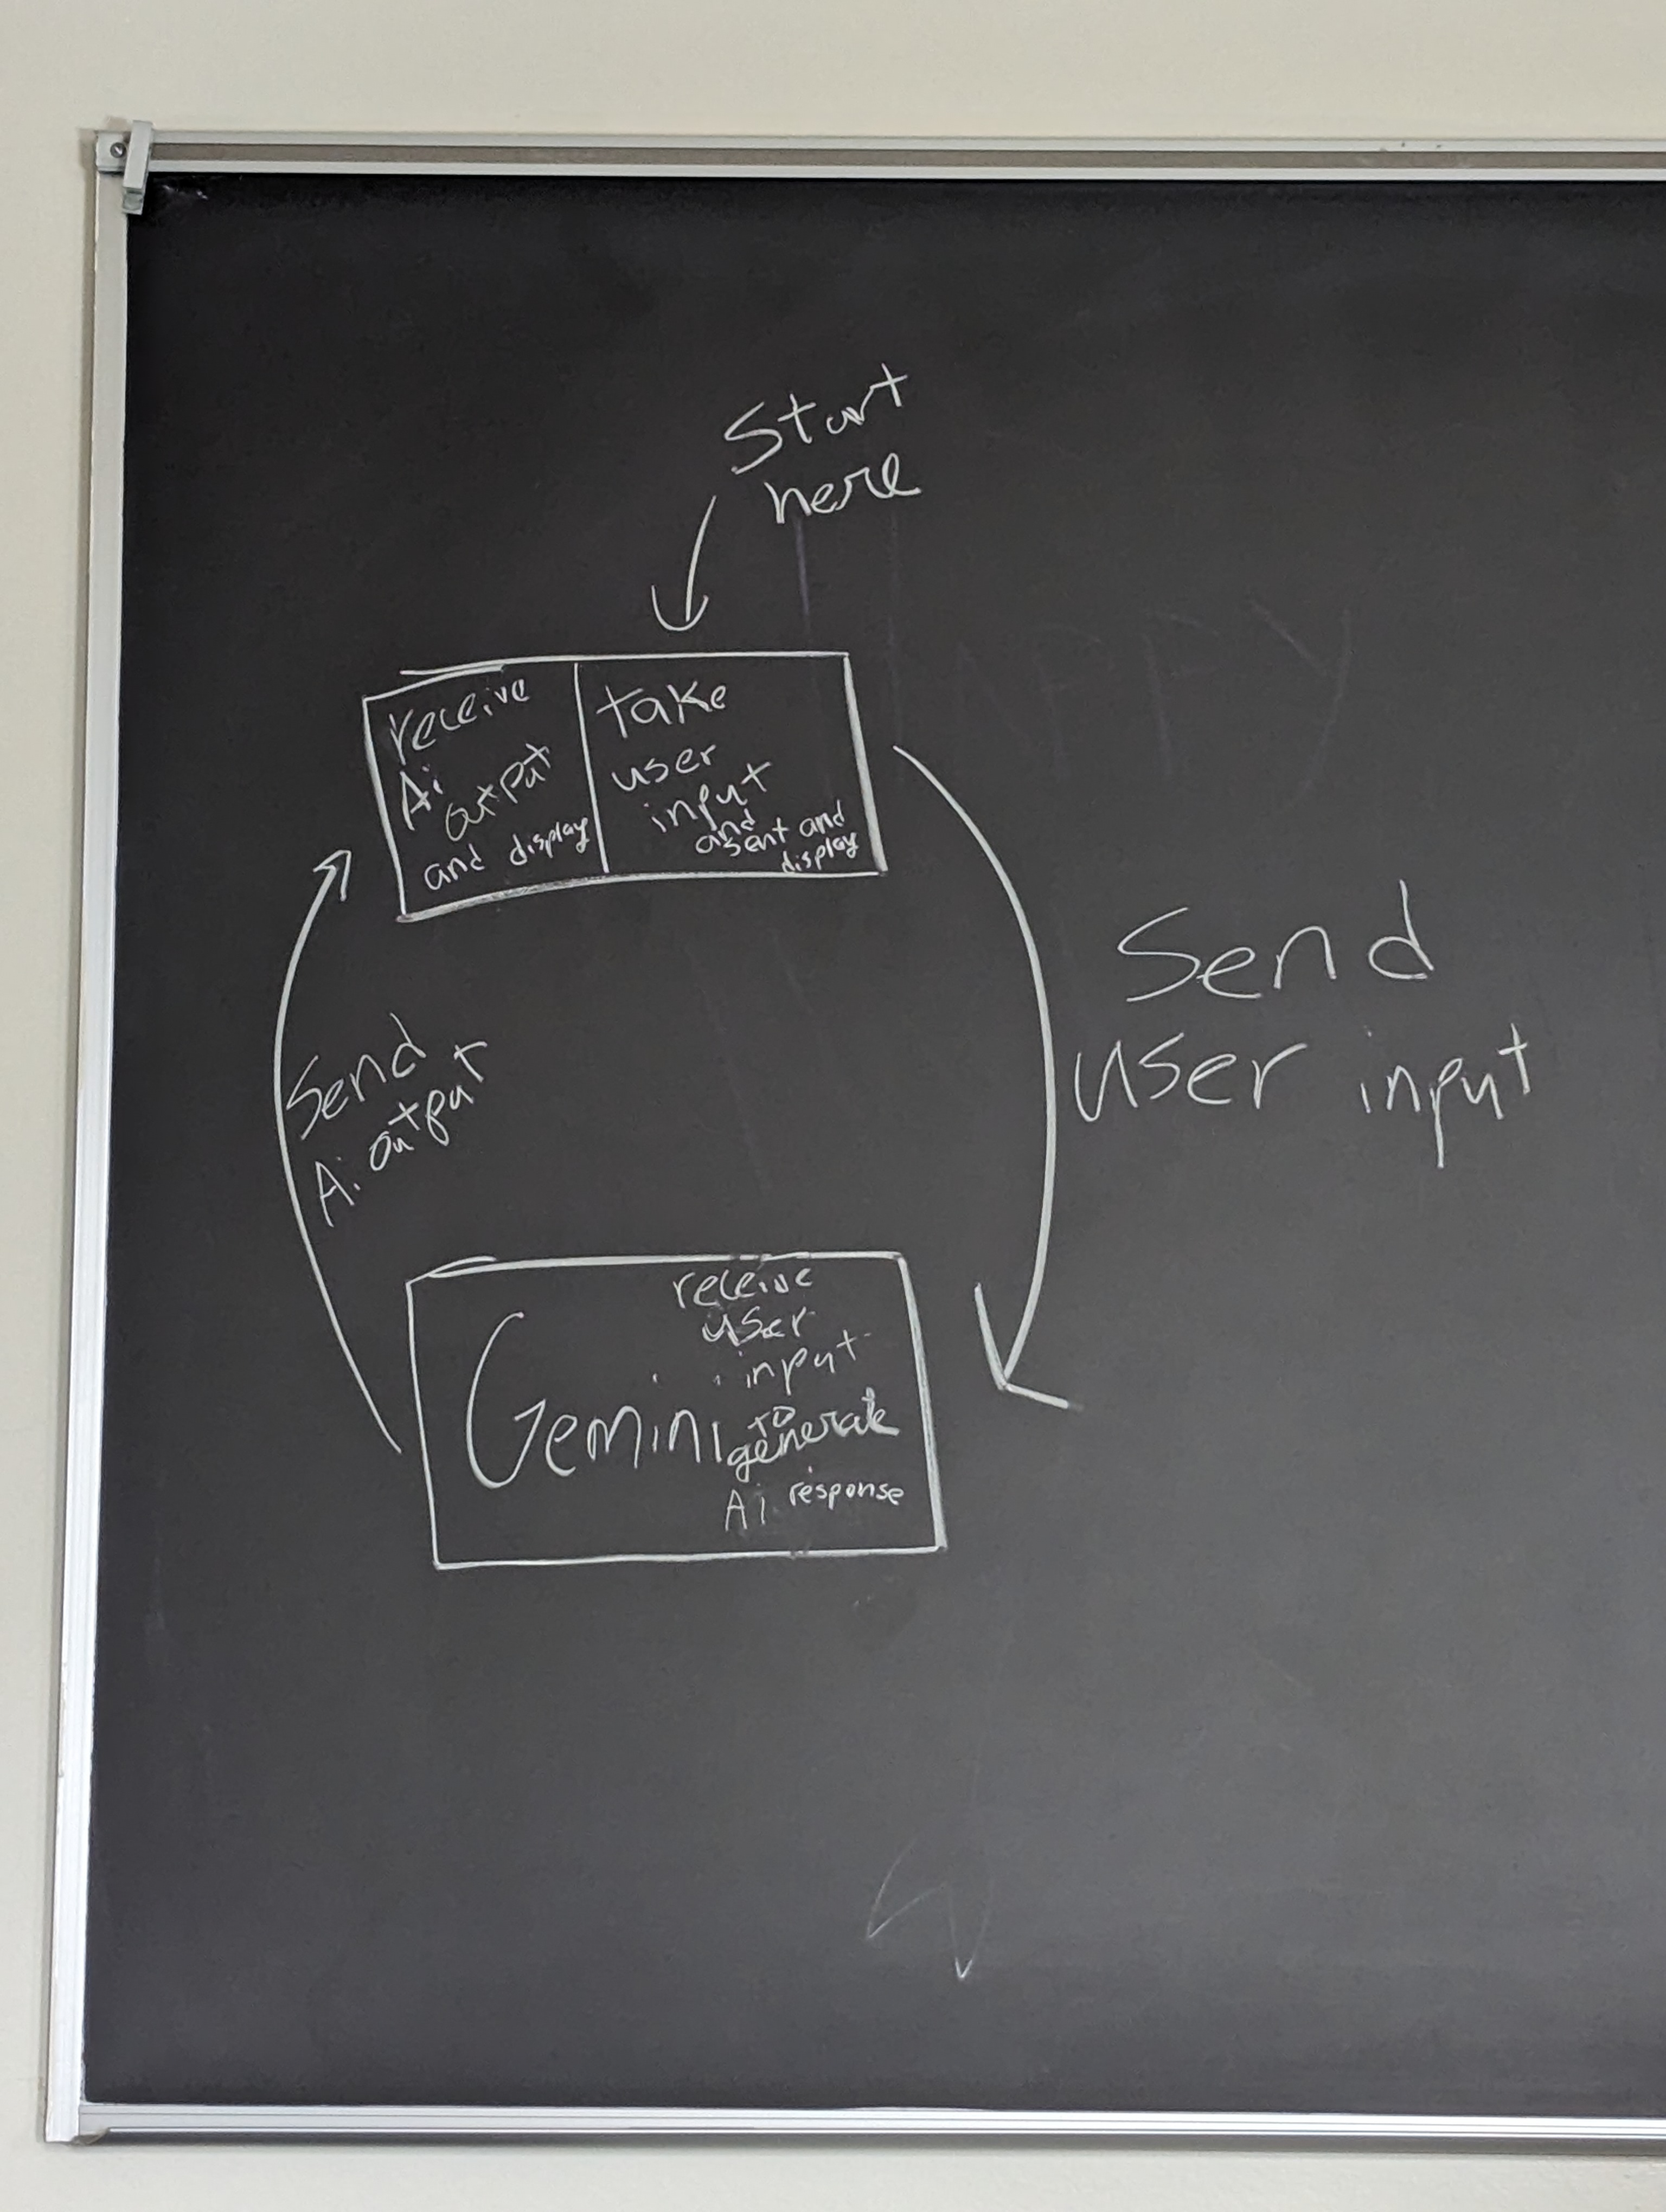 Start
here
receive
Ai
output
and display
take
user
input
and
asent and
display
Send
user input
Send
Ai output
Gemini
receive
user
input
to
generate
Ai response